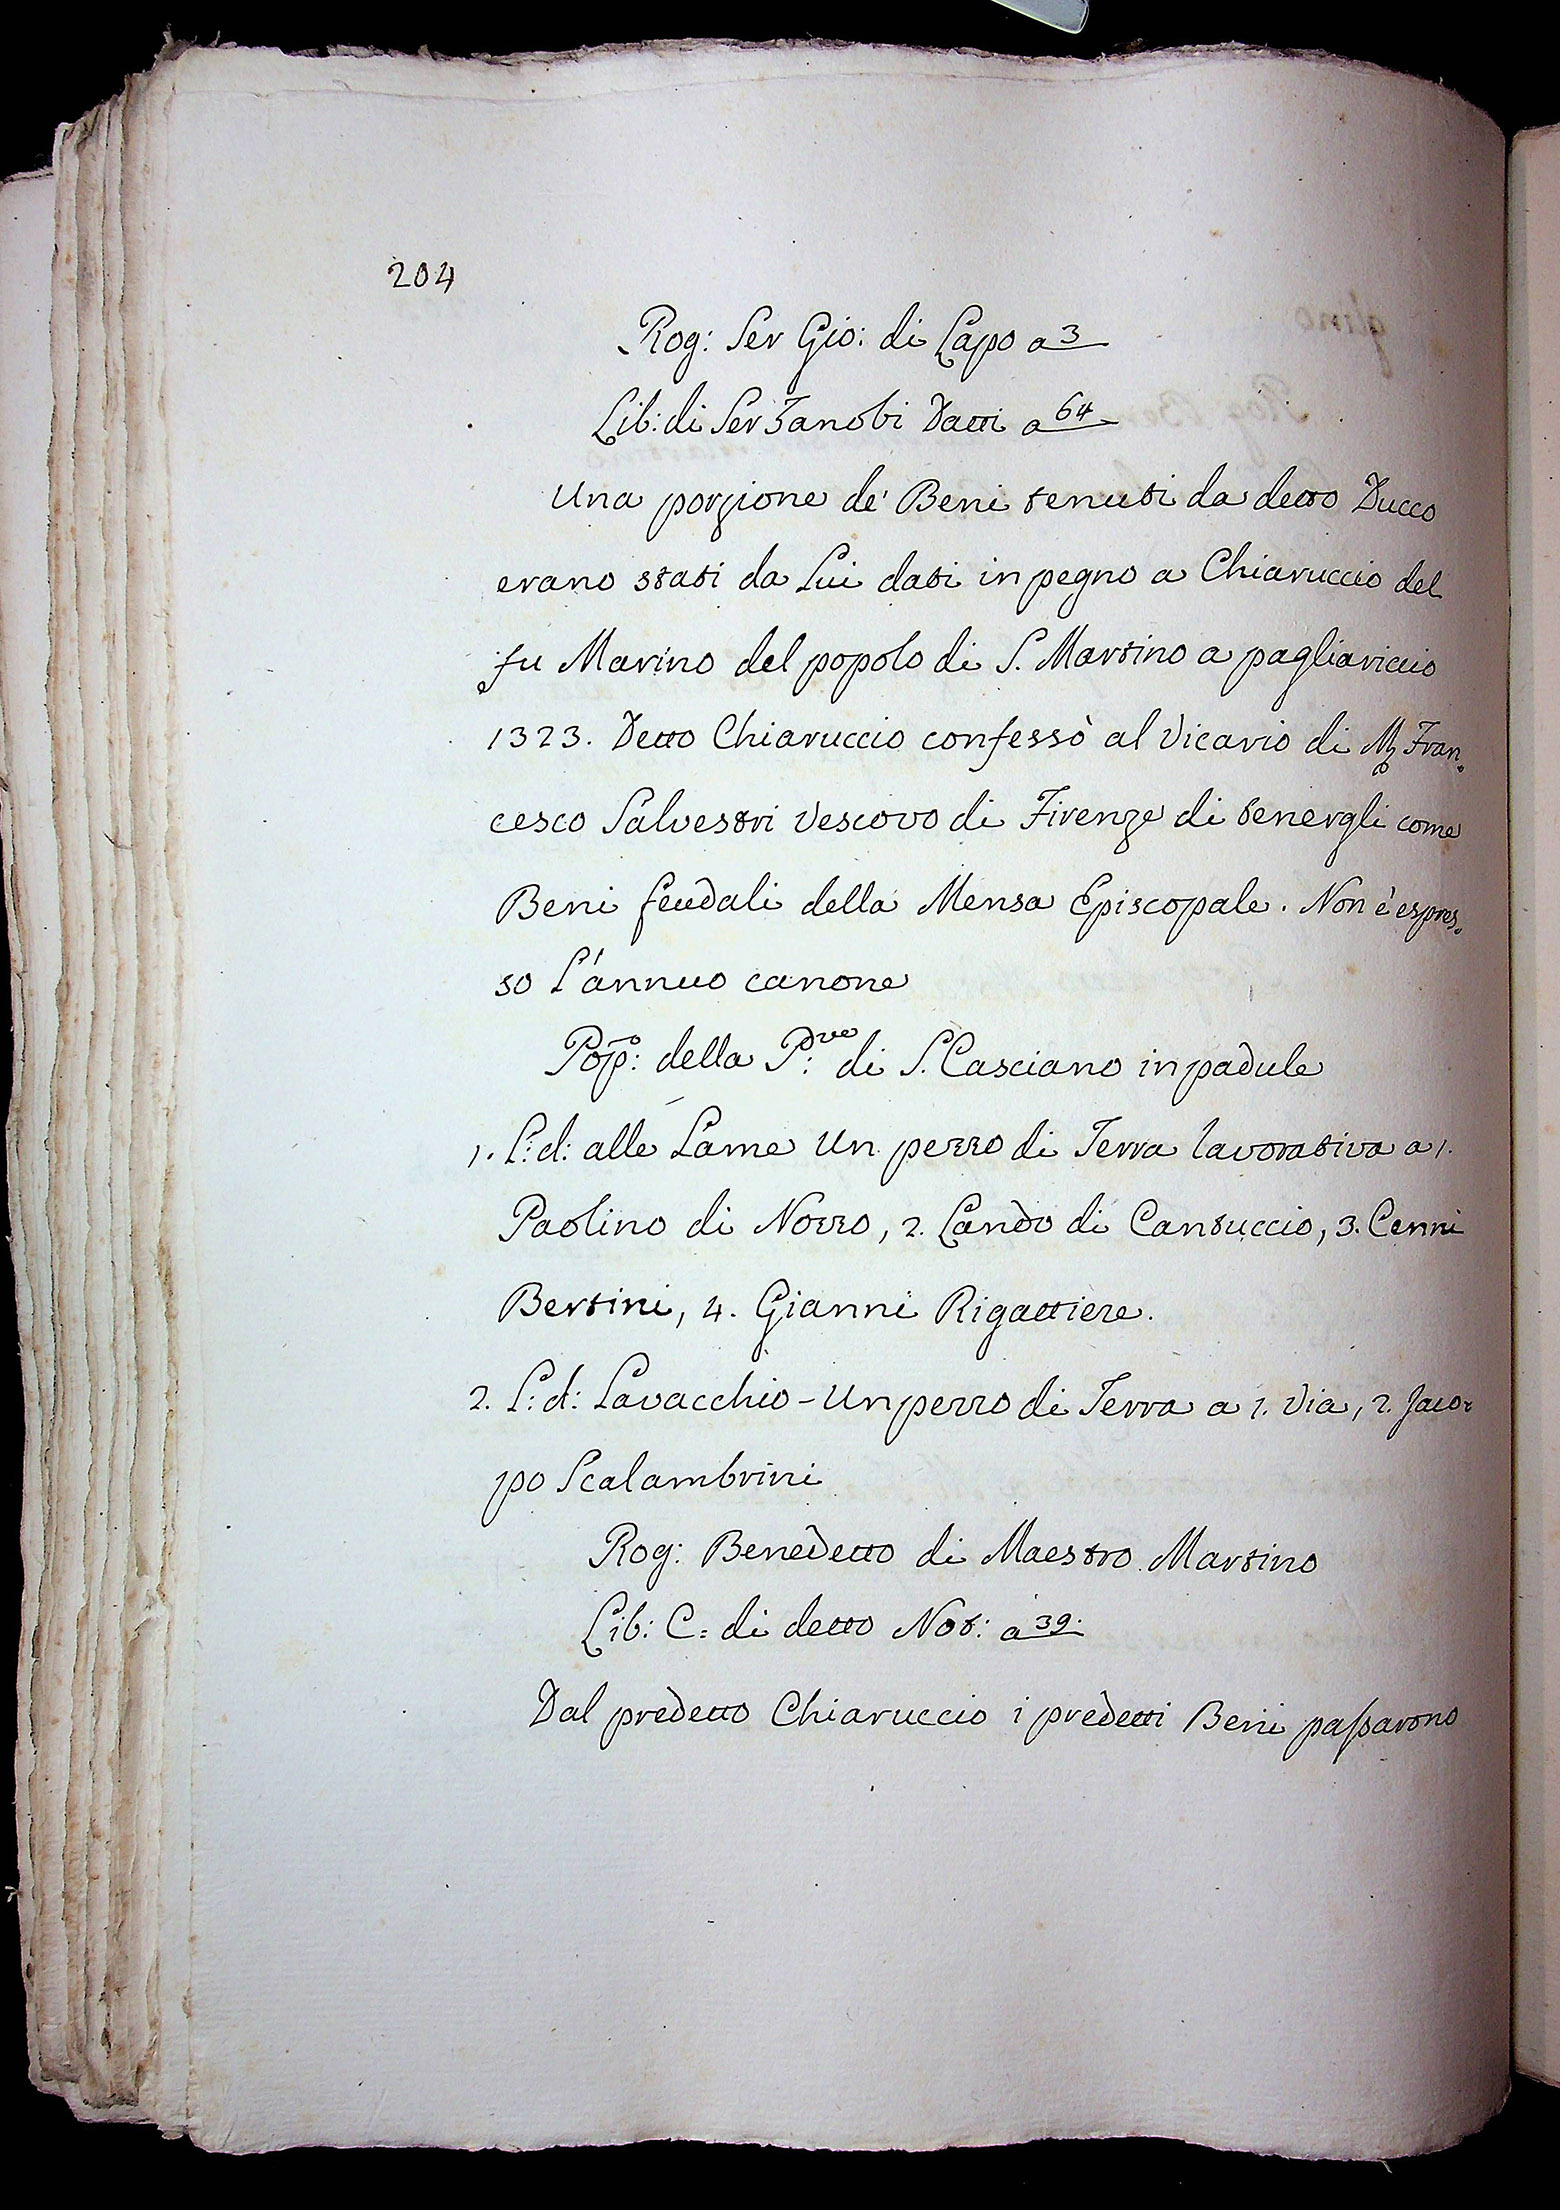 204
Rog: Ser Gio: di Lapo a 3
Lib: di Ser Zanobi Datti a 64
Una porzione de' Beni tenuti da detto Ducco
erano stati da Lui dati in pegno a Chiaruccio del
fu Marino del popolo di S. Martino a pagliariccio
1323. Detto Chiaruccio confessò al Vicario di M. Fran
cesco Salvestri Vescovo di Firenze di tenergli come
Beni feudali della Mensa Episcopale. Non è espres
so l'annuo canone
Pop̃o: della P:ve di S. Casciano in padule
1. L: d: alle Lame Un pezzo di Terra lavorativa a 1.
Paolino di Nozzo, 2. Lando di Cantuccio, 3. Cenni
Bertini, 4. Gianni Rigattiere.
2. L: d: Lavacchio - Un pezzo di Terra a 1. Via, 2. Jaco
po Scalambrini
Rog: Benedetto di Maestro Martino
Lib: C= di detto Not: a 39.
Dal predetto Chiaruccio i predetti Beni passarono